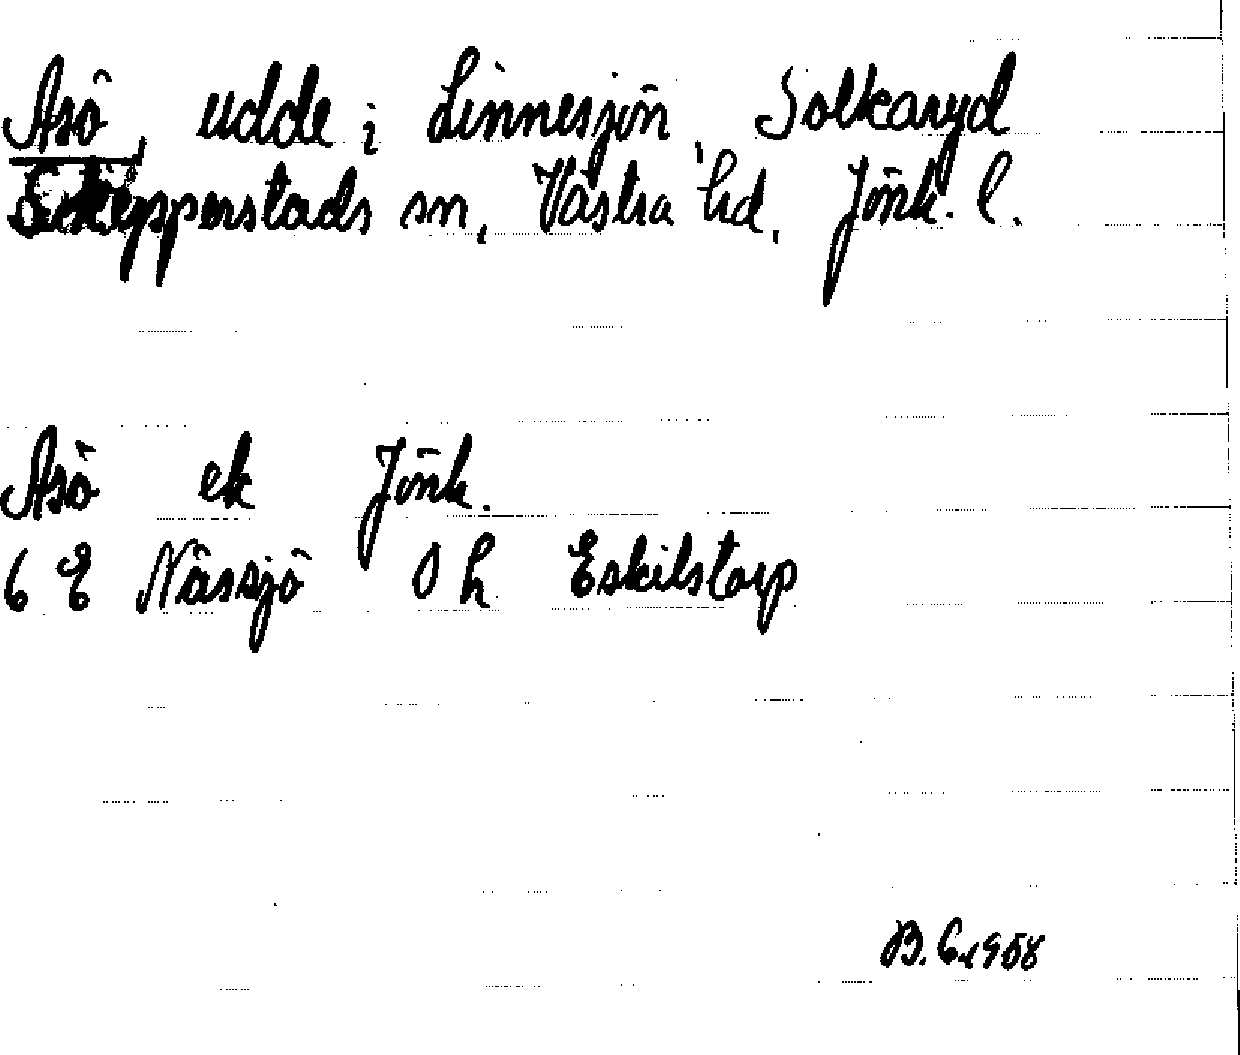 Asö, udde i Linnesjön, Solkaryd
Skepperstads sn, Västra hd, Jönk. l.
Asö ek Jönk.
6 E Nässjö 0 h Eskilstorp
B. E. 1958